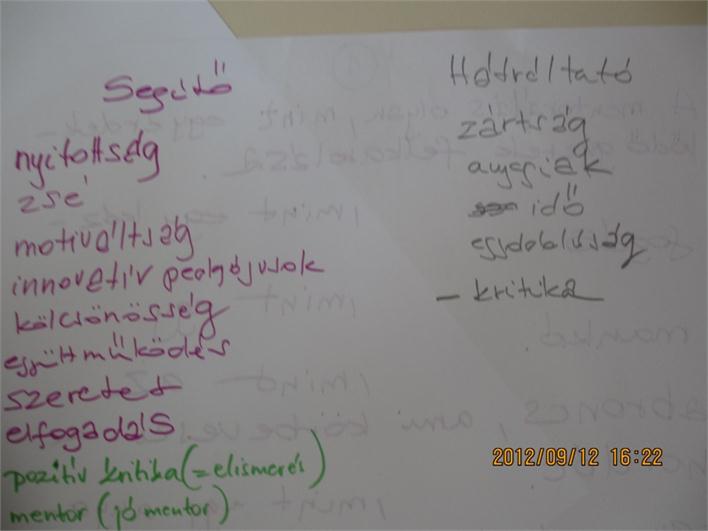 Segítő
nyitottság
zsé
motiváltság
innovatív pedagógusok
kölcsönösség
együttműködés
szeretet
elfogadás
pozitív kritika (=elismerés)
mentor (jó mentor)
Hátráltató
zártság
anyagiak
idő
egyoldalúság
- kritika
2012/09/12 16:22